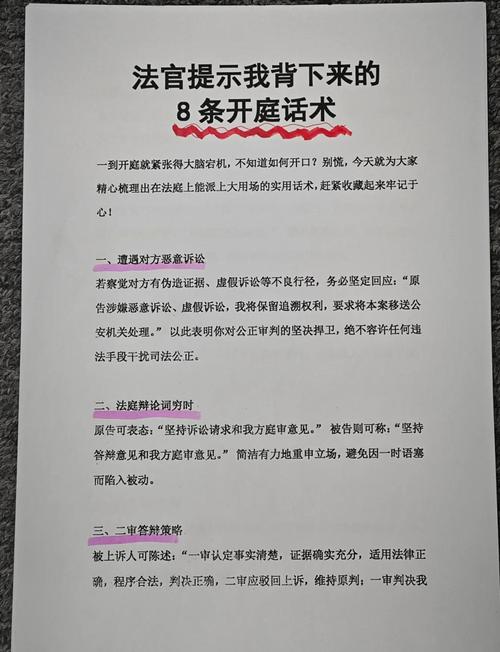 法官提示我背下来的
8 条开庭话术
一到开庭就紧张得大脑宕机，不知道如何开口？别慌，今天就为大家
精心梳理出在法庭上能派上大用场的实用话术，赶紧收藏起来牢记于
心！
一、遭遇对方恶意诉讼
若察觉对方有伪造证据、虚假诉讼等不良行径，务必坚定回应：“原
告涉嫌恶意诉讼、虚假诉讼，我将保留追溯权利，要求将本案移送公
安机关处理。” 以此表明你对公正审判的坚决捍卫，绝不容许任何违
法手段干扰司法公正。
二、法庭辩论词穷时
原告可表态：“坚持诉讼请求和我方庭审意见。” 被告则可称：“坚持
答辩意见和我方庭审意见。” 简洁有力地重申立场，避免因一时语塞
而陷入被动。
三、二审答辩策略
被上诉人可陈述：“一审认定事实清楚，证据确实充分，适用法律正
确，程序合法，判决正确，二审应驳回上诉，维持原判：一审判决我